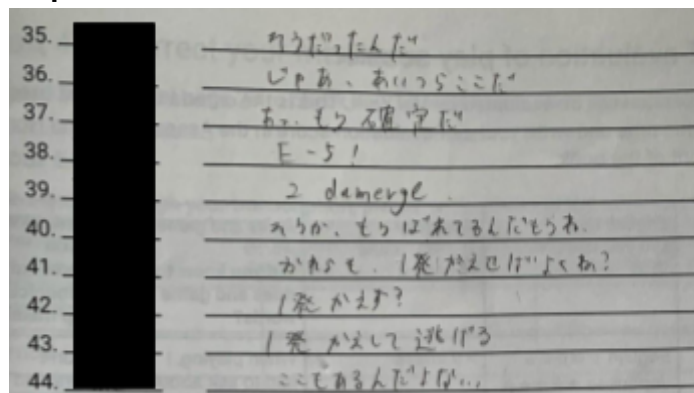 35. そうだったんだ
36. じゃあ、あいつらここだ
37. あっ、もう確定だ
38. E-5!
39. 2 damerge.
40. そうか、もうばれてるんだもうね.
41. おれよも、1発かえせばよくね?
42. 1発かえす?
43. 1発かえして逃げる
44. ここもあるんだよな…